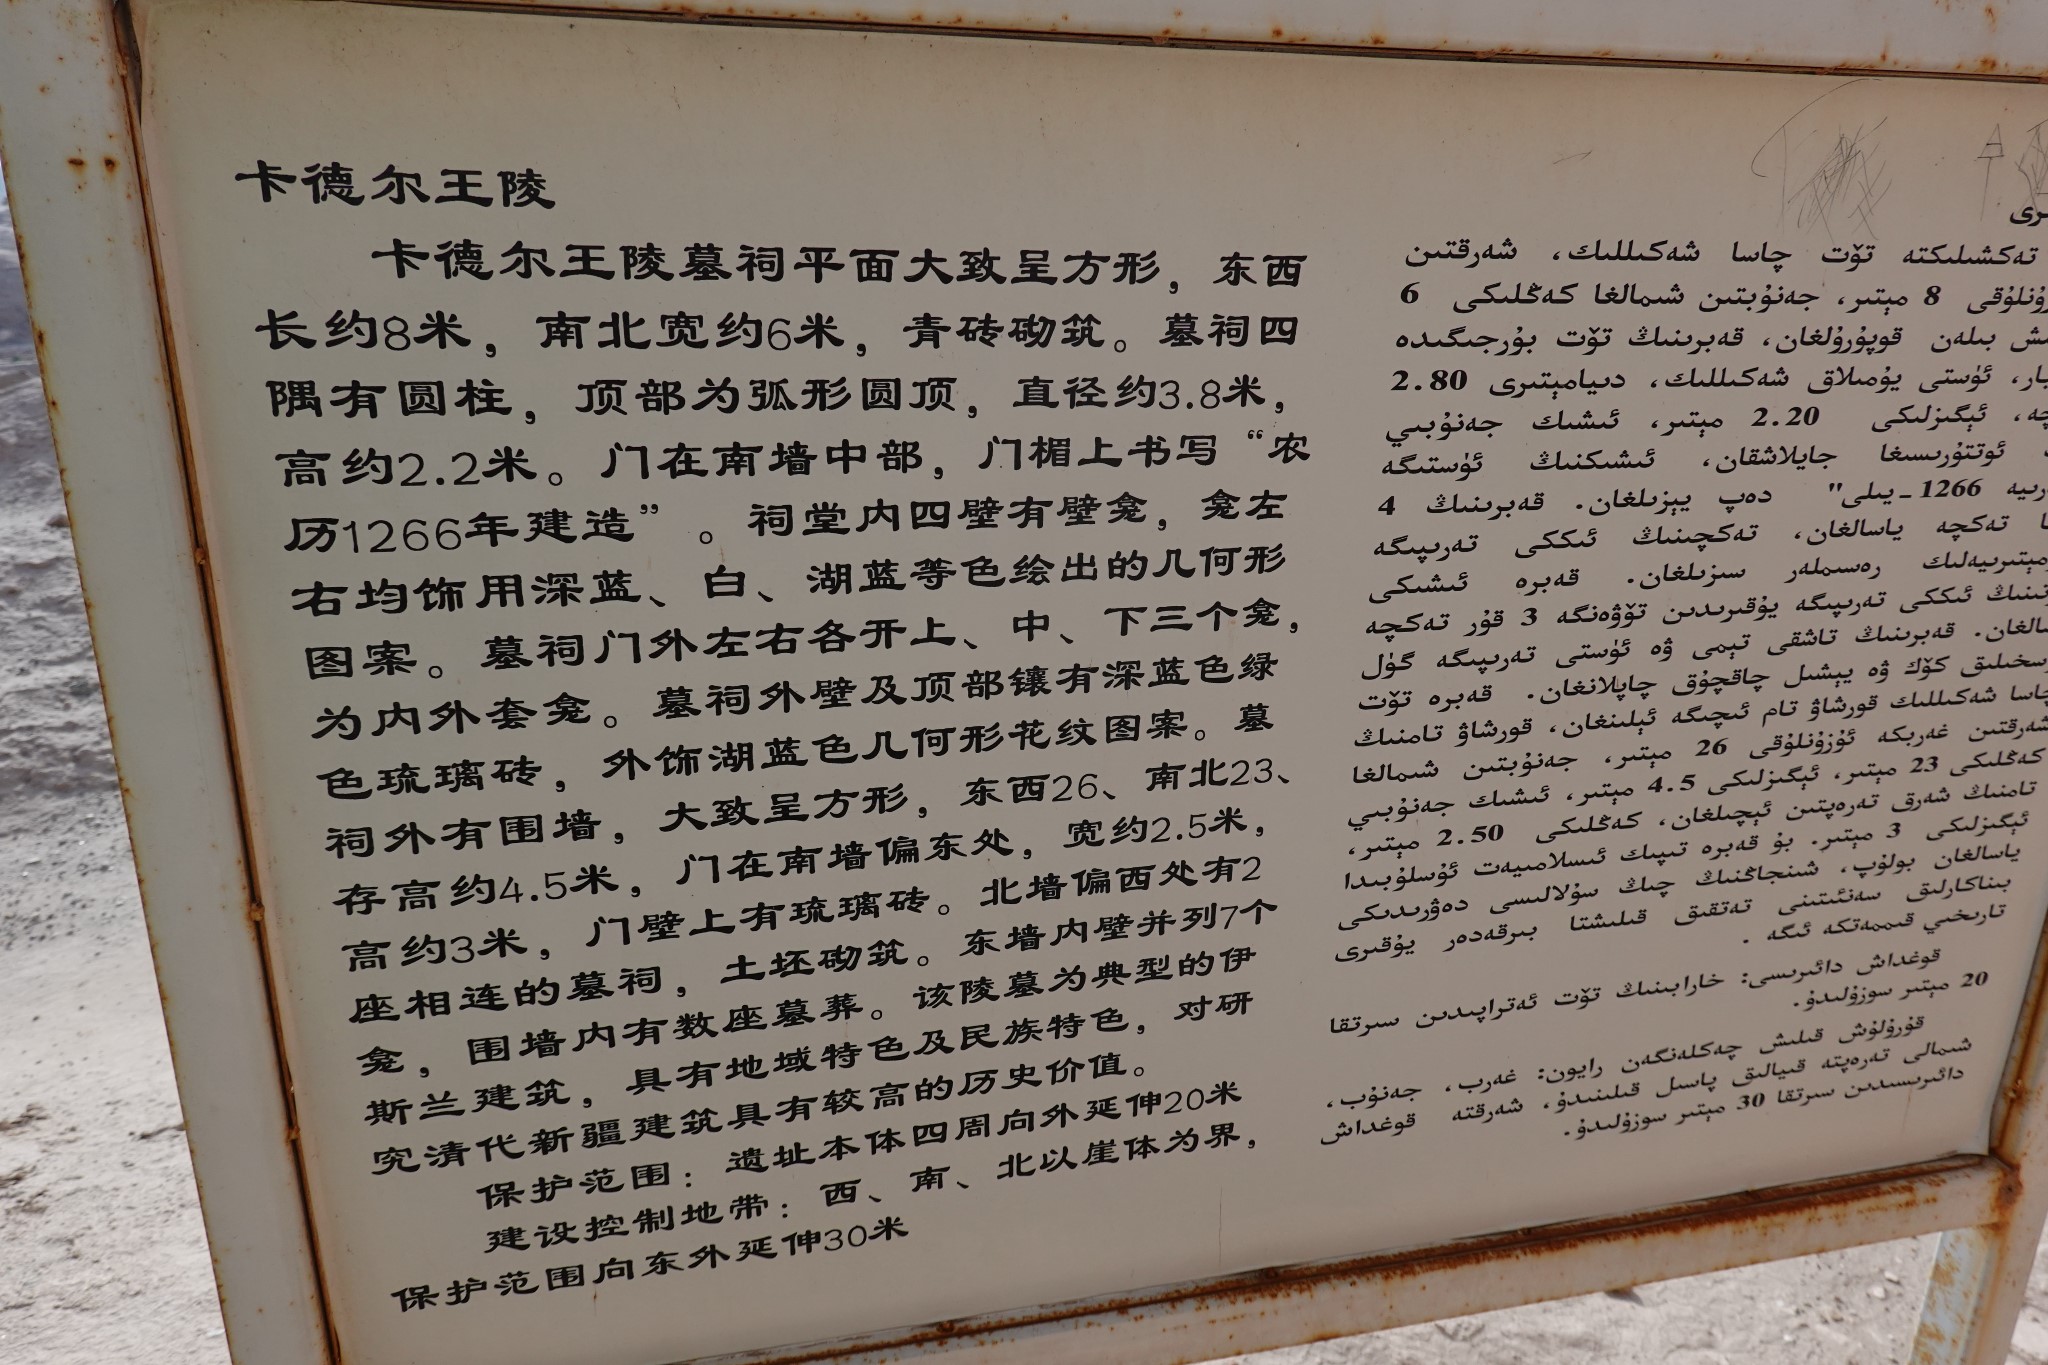 卡德尔王陵
卡德尔王陵墓祠平面大致呈方形，东西
长约8米，南北宽约6米，青砖砌筑。墓祠四
隅有圆柱，顶部为弧形圆顶，直径约3.8米，
高约2.2米。门在南墙中部，门楣上书写“农
历1266年建造”。祠堂内四壁有壁龛，龛左
右均饰用深蓝、白、湖蓝等色绘出的几何形
图案。墓祠门外左右各开上、中、下三个龛，
为内外套龛。墓祠外壁及顶部镶有深蓝色绿
色琉璃砖，外饰湖蓝色几何形花纹图案。墓
祠外有围墙，大致呈方形，东西26、南北23、
存高约4.5米，门在南墙偏东处，宽约2.5米，
高约3米，门壁上有琉璃砖。北墙偏西处有2
座相连的墓祠，土坯砌筑。东墙内壁并列7个
龛，围墙内有数座墓葬。该陵墓为典型的伊
斯兰建筑，具有地域特色及民族特色，对研
究清代新疆建筑具有较高的历史价值。
保护范围：遗址本体四周向外延伸20米
建设控制地带：西、南、北以崖体为界，
保护范围向东外延伸30米
تەكشىلىكتە تۆت چاسا شەكىللىك، شەرقتىن
8 مېتىر، جەنۇبتىن شىمالغا كەڭلىكى 6
بىلەن قوپۇرۇلغان، قەبرىنىڭ تۆت بۇرجىگىدە
ئۈستى يۇمىلاق شەكىللىك، دىيامېتىرى 2.80
ئېگىزلىكى 2.20 مېتىر، ئىشىك جەنۇبىي
ئوتتۇرىسىغا جايلاشقان، ئىشىكنىڭ ئۈستىگە
1266 ـ يىلى" دەپ يېزىلغان. قەبرىنىڭ 4
تەكچە ياسالغان، تەكچىنىڭ ئىككى تەرىپىگە
رەسىملەر سىزىلغان. قەبرە ئىشىكى
ئىككى تەرىپىگە يۇقىرىدىن تۆۋەنگە 3 قۇر تەكچە
قەبرىنىڭ تاشقى تېمى ۋە ئۈستى تەرىپىگە گۈل
كۆك ۋە يېشىل چاقچۇق چاپلانغان. قەبرە تۆت
چاسا شەكىللىك قورشاۋ تام ئىچىگە ئېلىنغان، قورشاۋ تامنىڭ
شەرقتىن غەربكە ئۇزۇنلۇقى 26 مېتىر، جەنۇبتىن شىمالغا
كەڭلىكى 23 مېتىر، ئېگىزلىكى 4.5 مېتىر، ئىشىك جەنۇبىي
تامنىڭ شەرق تەرەپتىن ئېچىلغان، كەڭلىكى 2.50 مېتىر،
ئېگىزلىكى 3 مېتىر. بۇ قەبرە تىپىك ئىسلامىيەت ئۇسلۇبىدا
ياسالغان بولۇپ، شىنجاڭنىڭ چىڭ سۇلالىسى دەۋرىدىكى
بىناكارلىق سەنئىتىنى تەتقىق قىلىشتا بىرقەدەر يۇقىرى
تارىخىي قىممەتكە ئىگە .
قوغداش دائىرىسى: خارابىنىڭ تۆت ئەتراپىدىن سىرتقا
20 مېتىر سوزۇلىدۇ.
قۇرۇلۇش قىلىش چەكلەنگەن رايون: غەرب، جەنۇب،
شىمالى تەرەپتە قىيالىق پاسىل قىلىنىدۇ، شەرقتە قوغداش
دائىرىسىدىن سىرتقا 30 مېتىر سوزۇلىدۇ.